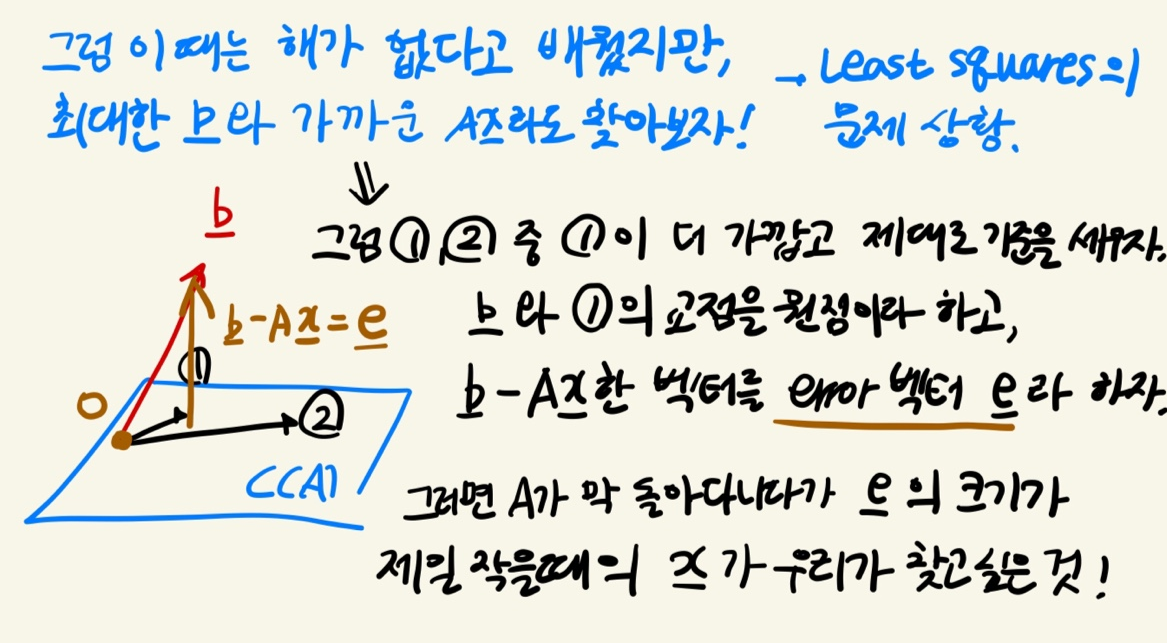 그럼 이때는 해가 없다고 배웠지만, → Least squares의
최대한 b와 가까운 Ax라도 찾아보자! 문제 상황.
⇓
b
그럼 ①,② 중 ①이 더 가깝고 제대로 기준을 세우자.
b-Ax=e
b와 ①의 교점을 원점이라 하고,
①
b-Ax한 벡터를 error 벡터 e라 하자.
O
②
C(A)
그러면 A가 막 돌아다니다가 e의 크기가
제일 작을때의 x가 우리가 찾고싶은 것!